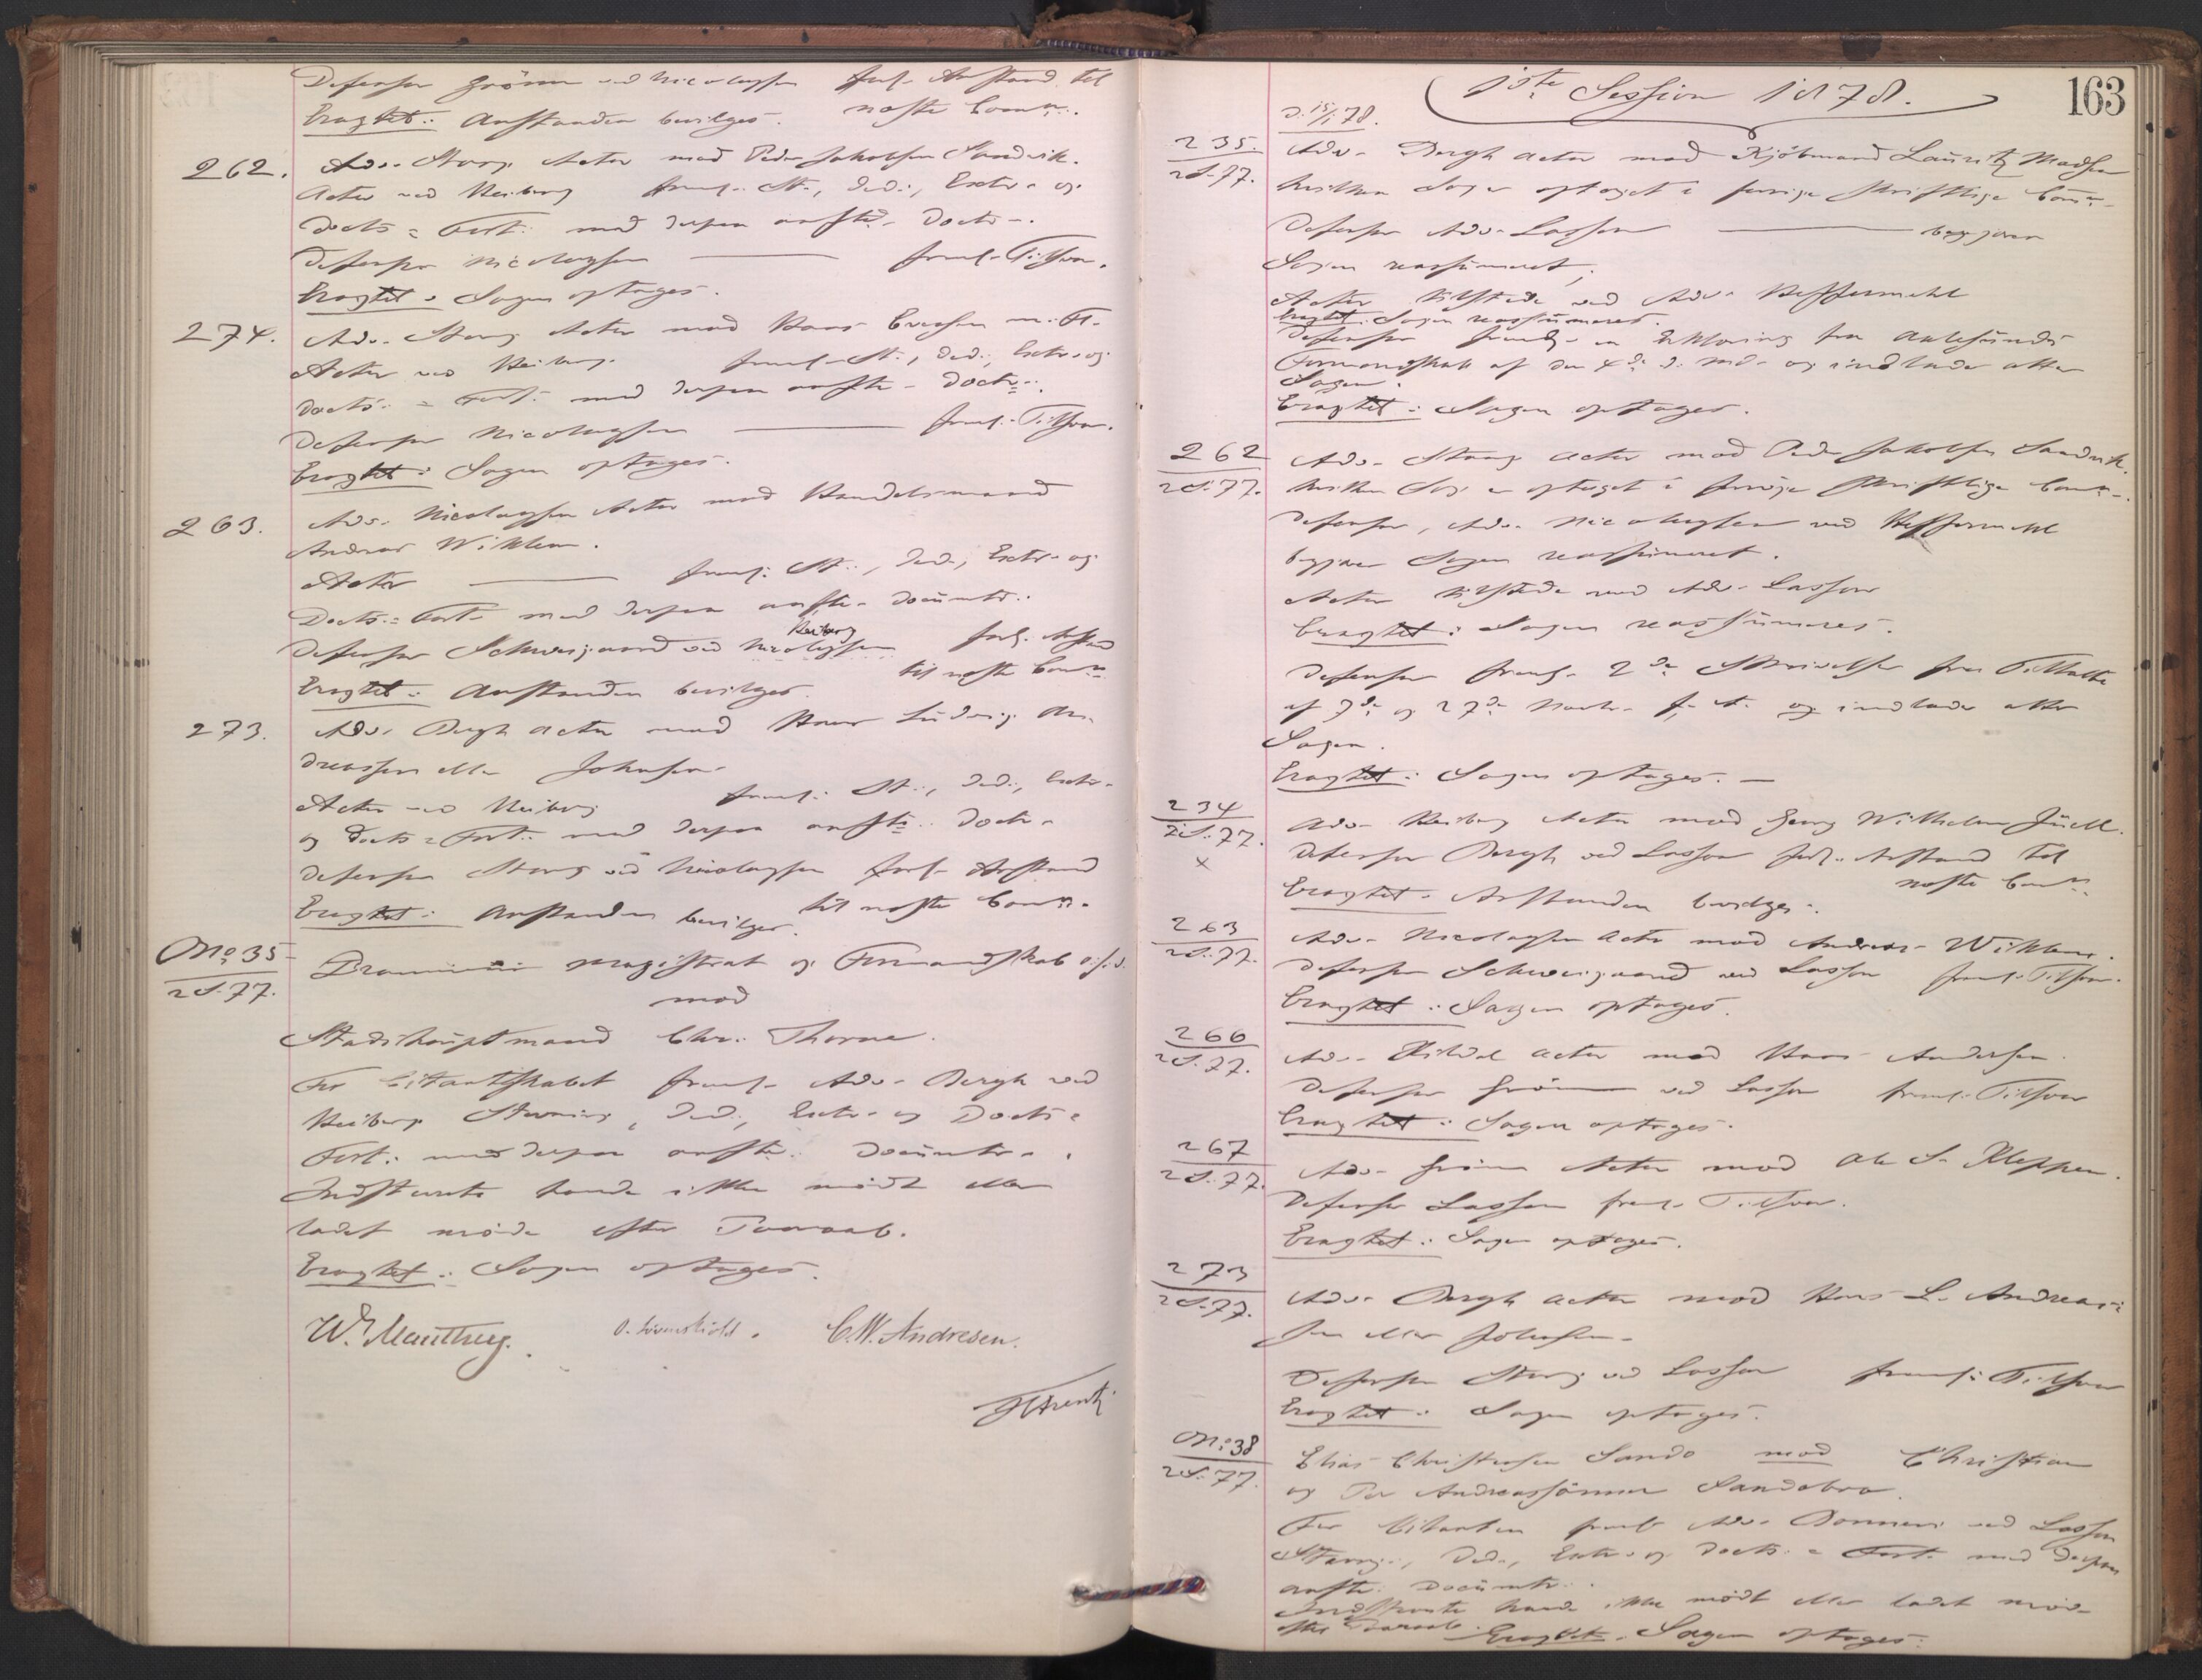 Defensor Grönn ved Nicolaysen forl. Anstand til
Eragtet: Anstanden bevilges. næste Comn.
262. Adv. Stang Actor mod Peder Jakobsen Sandvik.
Actor ved Heiberg freml. St., Ded., Extr. og
Docts = Fort. med derpaa anførte Doctr.
Defensor Nicolaysen — freml. Tilsvar.
Eragtet: Sagen optages.
274. Adv. Stang Actor mod Hans Evensen m. Fl.
Actor ved Heiberg freml. St., Ded., Extr. og
Docts. = Fort. med derpaa anførte Doctr.
Defensor Nicolaysen — freml. Tilsvar.
Eragtet: Sagen optages.
263. Adv. Nicolaysen Actor mod Handelsmand
Andreas Wiklem.
Actor — freml. St., Ded., Extr. og
Docts. = Fort. med derpaa anførte Documtr.
Heiberg
Defensor Schweigaard ved Nicolaysen forl. Anstand
Eragtet: Anstanden bevilges. til næste Comn.
273. Adv. Bergh Actor mod Hans Ludvig An-
dreassen eller Johnsen
Actor ved Heiberg freml. St., Ded., Extr.
og Docts = Fort. med derpaa anførte Doctr.
Defensor Stang ved Nicolaysen forl. Anstand
Eragtet: Anstanden bevilges. til næste Comn.
No 35
2 S. 77.
Magistrat og Formandskab
mod
Stadshauptmand Chr. Thorne.
For Citantskabet freml. Adv. Bergh ved
Heiberg Stevning, Ded., Extr. og Docts =
Fort. med derpaa anførte Documtr.
Indstevnte havde ikke mödt eller
ladet møde efter Paaraab.
Eragtet: Sagen optages.
O. Løvenskiold. C.W. Andresen.
163
1ste Session 1878.
D. 15/1 78.
235.
2 S. 77.
Adv. Bergh Actor mod Kjöbmand Lauritz Madsen
hvilken Sag er optaget i forrige skriftlige Comn.
Defensor Adv. Lasson — begjærer
Sagen reassumeret,
Actor tilstede ved Adv. Heffermehl
Eragtet: Sagen reassumeres.
Defensor freml. en Erklæring fra Aalesunds
Formandskab af den 4de d. Md. og indlader atter
Sagen.
Eragtet: Sagen optages.
262
2 S. 77.
Adv. Stang Actor mod Peder Jakobsen Sandvik.
hvilken Sag er optaget i forrige skriftlige Comn.
Defensor, Adv. Nicolaysen ved Heffermehl
begjærer Sagen reassumeret.
Actor tilstede ved Adv. Lasson
Eragtet: Sagen reassumeres.
Defensor freml. 2de Skrivelser fra Tiltalte
af 7de og 27de Novbr. f. A. og indlader atter
Sagen.
Eragtet: Sagen optages. —
234
2 S. 77.
x
Adv. Heiberg Actor mod Georg Wilhelm Juell.
Defensor Bergh ved Lasson forl. Anstand til
Eragtet. Anstanden bevilges. næste Comn.
263
2 S. 77.
Adv. Nicolaysen Actor mod Andreas Wiklem.
Defensor Schweigaard ved Lasson freml. Tilsvar.
Eragtet: Sagen optages.
266
2 S. 77.
Adv. Actor mod Hans Andersen.
Defensor Grönn ved Lasson freml. Tilsvar
Eragtet: Sagen optages.
267
2 S. 77.
Adv. Grönn Actor mod Ole S. Kleppen.
Defensor Lasson freml. Tilsvar.
Eragtet: Sagen optages.
273
2 S. 77.
Adv. Bergh Actor mod Hans L. Andreas-
sen eller Johnsen.
Defensor Stang ved Lasson freml. Tilsvar
Eragtet: Sagen optages.
No 38
2 S. 77.
Elias Christensen Sandø mod Christian
og Per Andreassönner Sandøbra.
For Citanten freml. Adv. ved Lasson
Stevng., Ded., Extr. og Docts. = Fort. med derpaa
anførte Documtr.
Indstevnte havde ikke mödt eller ladet møde
efter Paaraab. Eragtet: Sagen optages.